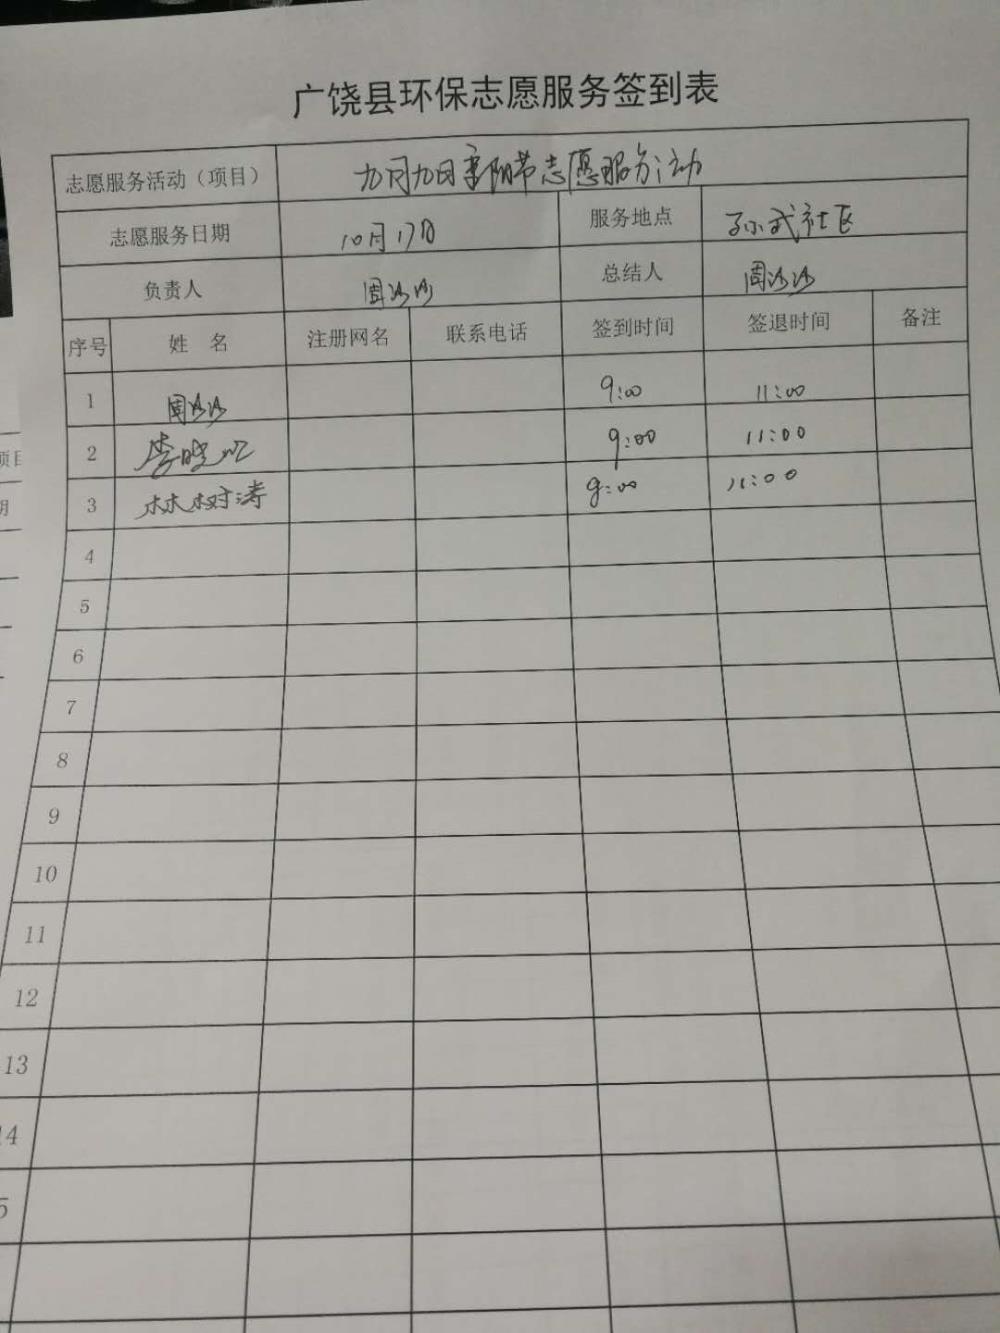 广饶县环保志愿服务签到表
志愿服务活动（项目） 九月九日重阳节志愿服务活动
志愿服务日期 10月17日 服务地点 孙武社区
负责人 周沙沙 总结人 周沙沙
序号 姓 名 注册网名 联系电话 签到时间 签退时间 备注
1 周沙沙 9:00 11:00
2 李晓 9:00 11:00
3 林树涛 9:00 11:00
4
5
6
7
8
9
10
11
12
13
14
5
项目
期